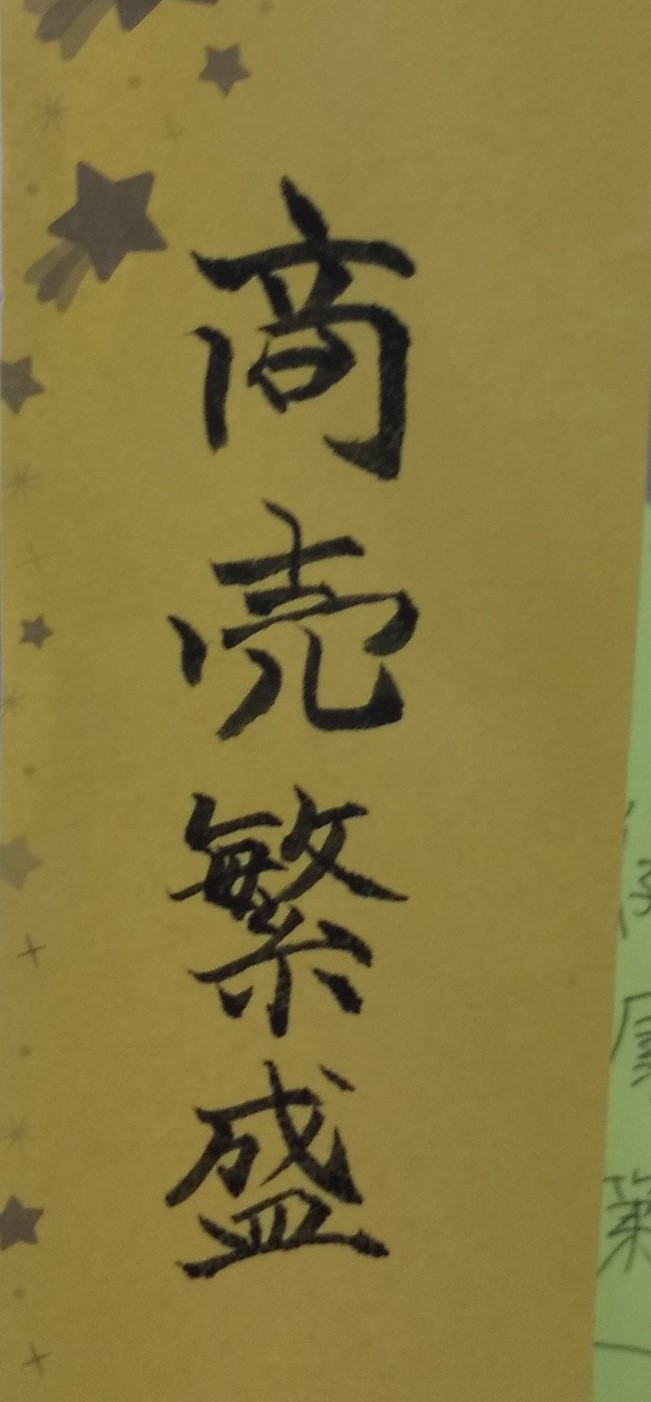 商売繁盛